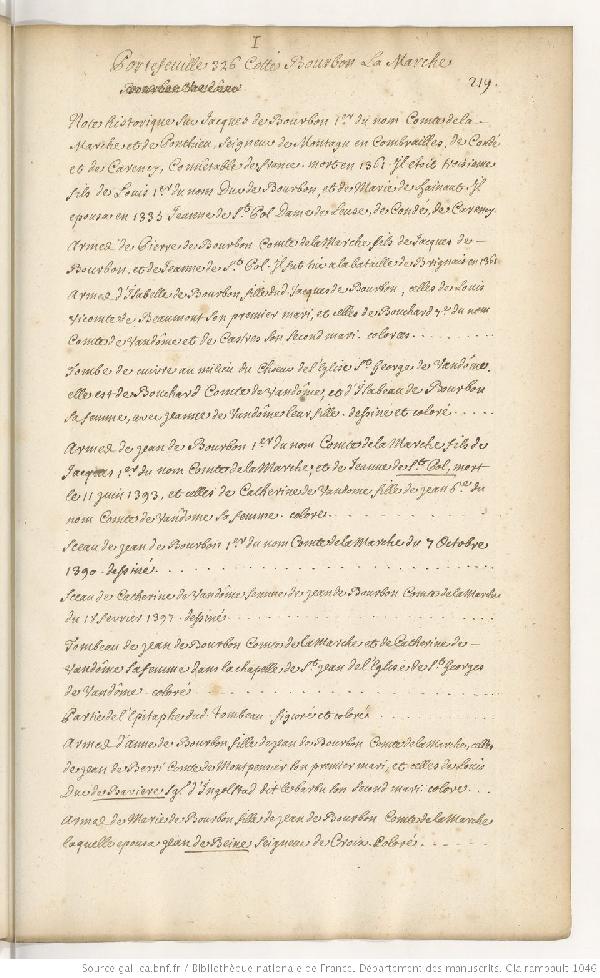 I
Portefeuille 326 Cotté Bourbon La Marche
219.
Note historique sur Jacques de Bourbon 1er du nom Comte de la
Marche et de Ponthieu, Seigneur de Montagu en Combrailles, de Condé
et de Carency, Connetable de france. mort en 1361. Jl étoit troisieme
fils de Louis 1er du nom Duc de Bourbon, et de Marie de hainaut. Jl
epousa en 1335 Jeanne de St. Pol Dame de Leuse, de Condé, de Carency
Armes de Pierre de Bourbon Comte de la Marche fils de Jacques de
Bourbon, et de Jeanne de St. Pol. Jl fut tué a la bataille de Brignais en 1361
Armes d'Isabelle de Bourbon fille dud. Jacques de Bourbon, celles de Louis
Vicomte de Beaumont son premier mari, et celles de Bouchard 7e. du nom
Comte de Vandôme et de Castres son second mari. colorées
Tombe de cuivre au milieu du Choeur de l'Eglise St. Georges de Vandôme.
elle est de Bouchard Comte de Vandôme, et d'Isabeau de Bourbon
sa femme, avec jeanne de Vandôme leur fille. dessiné et coloré
Armes de jean de Bourbon 1er du nom Comte de la Marche fils de
Jacques 1er du nom Comte de la Marche, et de Jeanne de St. Pol, mort
le 11 juin 1393, et celles de Catherine de Vandome, fille de jean 6e. du
nom Comte de Vandôme sa femme. coloré
Sceau de jean de Bourbon 1er du nom Comte de la Marche du 7 Octobre
1390. dessiné
Sceau de Catherine de Vandôme femme de jean de Bourbon Comte de la Marche
du fevrier 1397. dessiné
Tombeau de jean de Bourbon Comte de la Marche et de Catherine de
Vandôme sa femme dans la chapelle de St. jean de l'Eglise de St. Georges
de Vandôme. coloré
Partie de l'Epitaphe dud. Tombeau figuré et coloré
Armes d'anne de Bourbon fille de jean de Bourbon Comte de la Marche, celles
de jean de Berri Comte de Montpensier son premier mari, et celles de Louis
Duc de Baviere Sgr. d'Ingolstad dit le barbu son second mari. coloré
Armes de Marie de Bourbon fille de jean de Bourbon Comte de la Marche
laquelle epousa jean de Beine Seigneur de Croix. Coloré
Source gallica.bnf.fr / Bibliothèque nationale de France. Département des manuscrits. Clairambault 1046